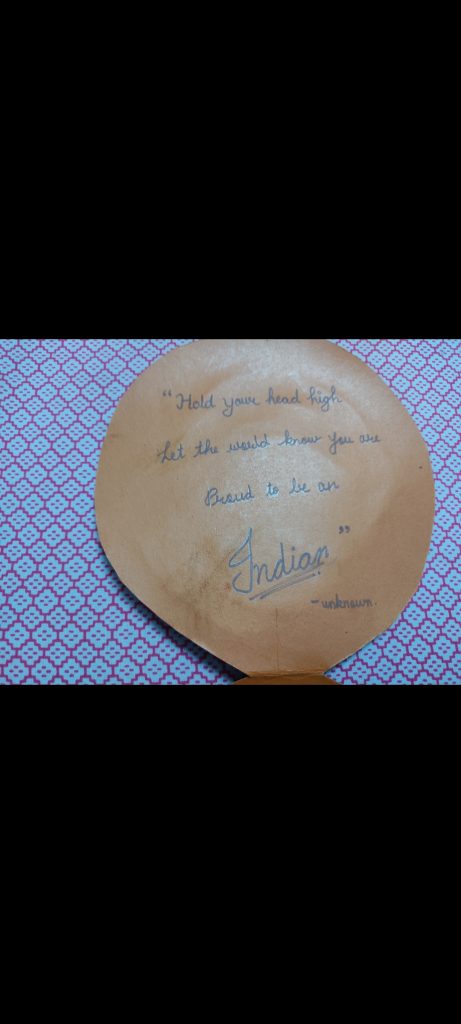 "Hold your head high
Let the world know you are
Proud to be an
Indian"
-unknown.